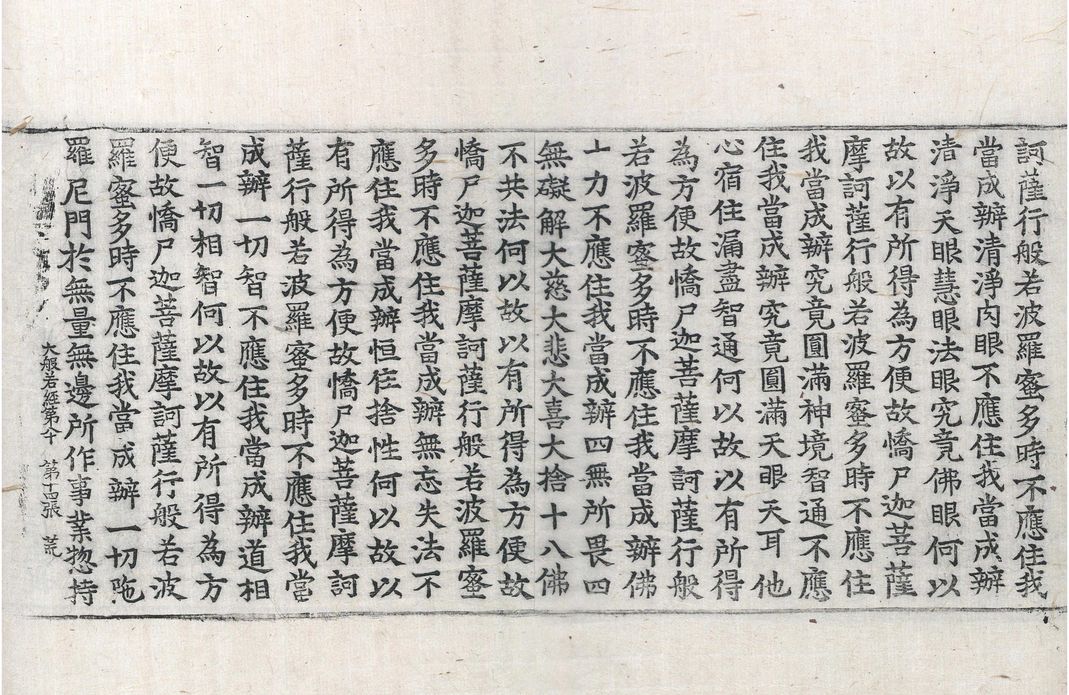 訶薩行般若波羅蜜多時不應住我
當成辦清淨肉眼不應住我當成辦
清淨天眼慧眼法眼究竟佛眼何以
故以有所得為方便故憍尸迦菩薩
摩訶薩行般若波羅蜜多時不應住
我當成辦究竟圓滿神境智通不應
住我當成辦究竟圓滿天眼天耳他
心宿住漏盡智通何以故以有所得
為方便故憍尸迦菩薩摩訶薩行般
若波羅蜜多時不應住我當成辦佛
十力不應住我當成辦四無所畏四
無礙解大慈大悲大喜大捨十八佛
不共法何以故以有所得為方便故
憍尸迦菩薩摩訶薩行般若波羅蜜
多時不應住我當成辦無忘失法不
應住我當成辦恒住捨性何以故以
有所得為方便故憍尸迦菩薩摩訶
薩行般若波羅蜜多時不應住我當
成辦一切智不應住我當成辦道相
智一切相智何以故以有所得為方
便故憍尸迦菩薩摩訶薩行般若波
羅蜜多時不應住我當成辦一切陁
羅尼門於無量無邊所作事業惣持
大般若經第八十 第十四張 荒